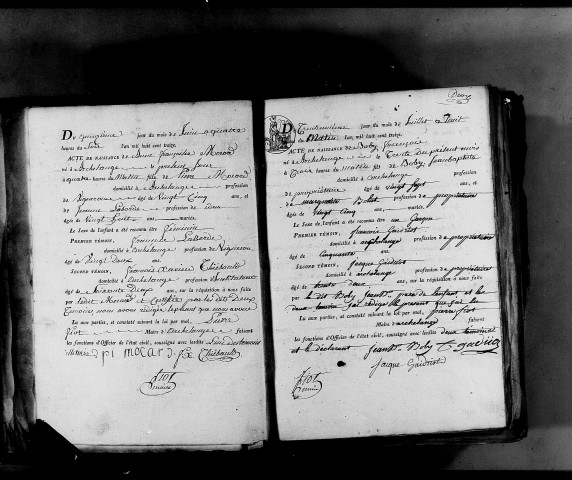 Du quinzième jour du mois de Juin a quatre
heures du soir l'an mil huit cent treize.
ACTE DE NAISSANCE de Anne françoise Mocard
né à Archelange le présent jour
à quatre heures du Matin fils de Pierre Mocard
domicilié à Archelange profession
de Vigneron âgé de Vingt Cinq ans, et
de Jeanne Laborde profession de
âgée de Vingt huit ans, mariés.
Le Sexe de l'enfant a été reconnu être féminin
PREMIER TÉMOIN, Laborde
domicilié à Archelange profession de Vigneron
âgé de Vingt deux ans.
SECOND TÉMOIN, françois Xavier Thiebault
domicilié à Archelange profession d'instituteur
âgé de deux ans, sur la réquisition à nous faite
par ledit Mocard
témoins, nous avons rédigé le présent que nous avons
Lu aux parties, et constaté suivant la loi par moi, Pierre
fiot Maire d'Archelange faisant
les fonctions d'Officier de l'état civil, soussigné avec lesdits
pi mocard f x Thiebault
fiot
maire
Deux
Du Trentunième jour du mois de Juillet a huit
heures du Matin l'an mil huit cent treize.
ACTE DE NAISSANCE de Boby françois
né à archelange le Trente du présent mois
à heures du matin fils de Boby Jeanbaptiste
domicilié à archelange profession
de propriétaire âgé de vingt sept ans, et
de marguerite profession de propriétaire
âgée de vingt Cinq ans, mariés.
Le Sexe de l'enfant a été reconnu être un garçon
PREMIER TÉMOIN, françois Gaidriot
domicilié à archelange profession de propriétaire
âgé de cinquante ans.
SECOND TÉMOIN, Jacque Gaidriot
domicilié à archelange profession de propriétaire
âgé de trente deux ans, sur la réquisition à nous faite
par le dit Boby père de l'enfant et les
deux témoins j'ai rédigé le présent
Lu aux parties, et constaté suivant la loi par moi, pierre fiot
Maire d'archelange faisant
les fonctions d'Officier de l'état civil, soussigné avec lesdits deux témoins
et le déclarant Jean Bte Boby
Jaque Gaidriot
fiot
maire